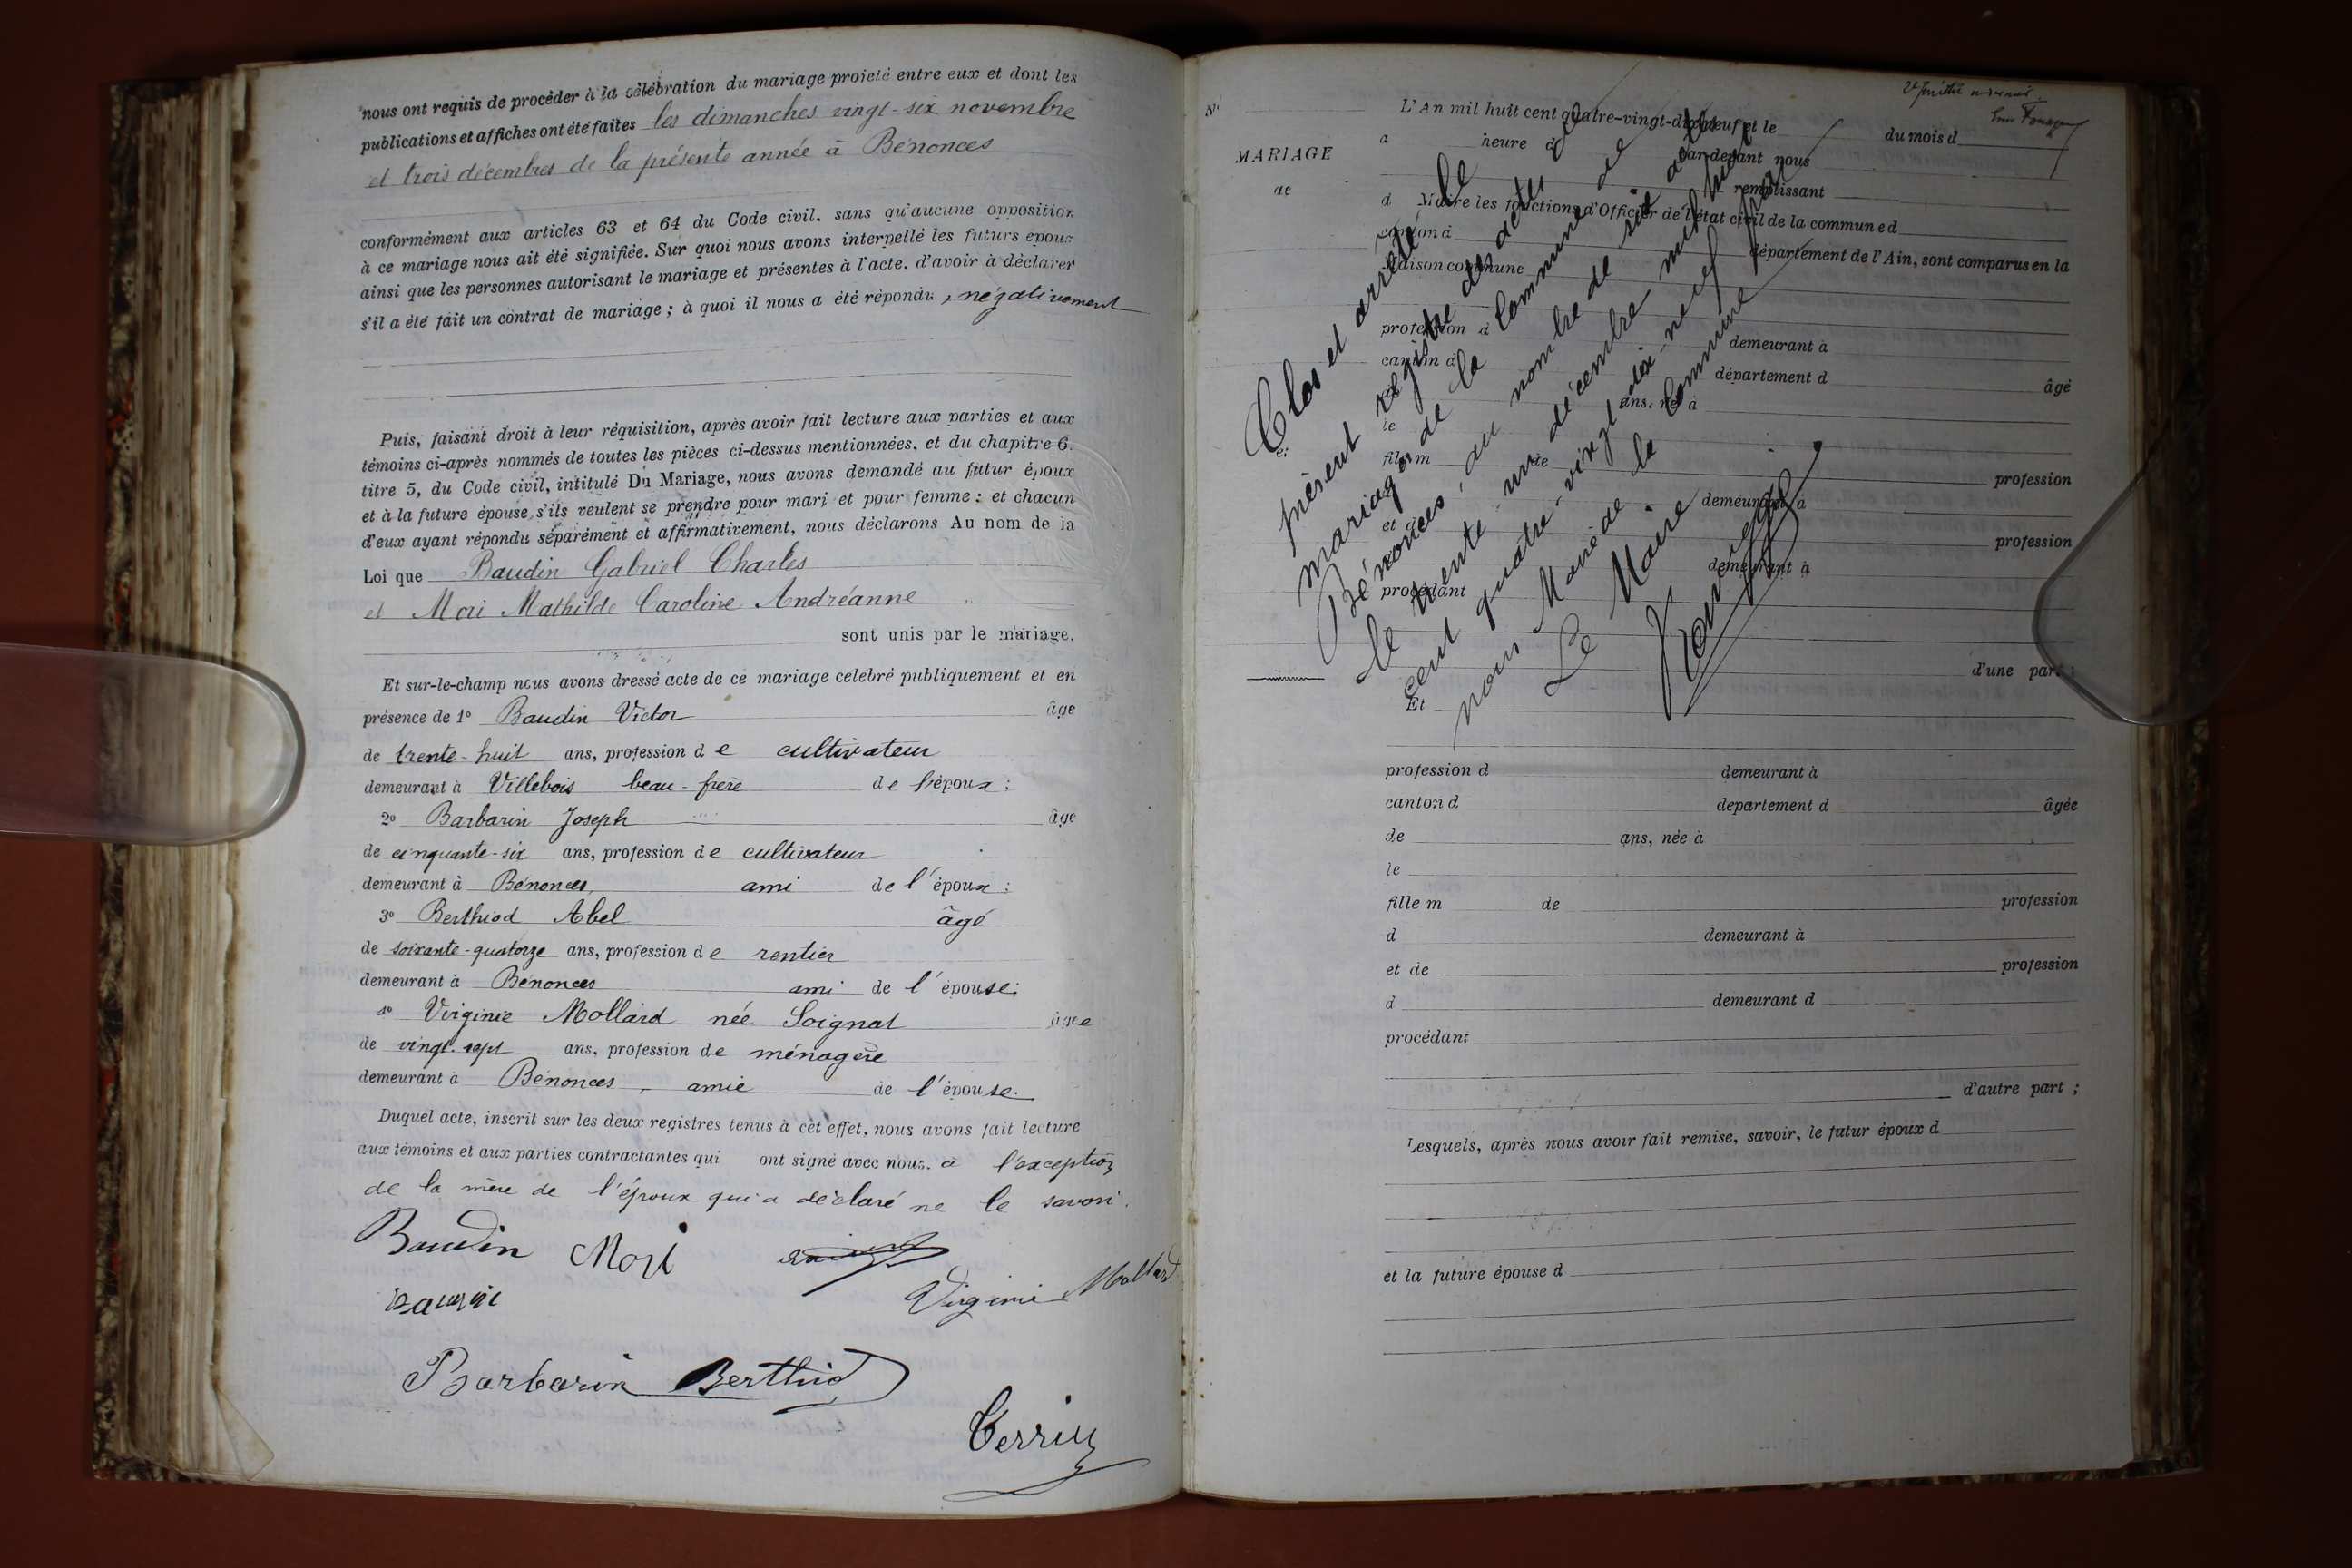 nous ont requis de procéder à la célébration du mariage projeté entre eux et dont les
publications et affiches ont été faites les dimanches vingt-six novembre
et trois décembres de la présente année à Bénonces
conformément aux articles 63 et 64 du Code civil. sans qu'aucune opposition
à ce mariage nous ait été signifiée. Sur quoi nous avons interpellé les futurs époux
ainsi que les personnes autorisant le mariage et présentes à l'acte. d'avoir à déclarer
s'il a été fait un contrat de mariage ; à quoi il nous a été répondu, négativement
Puis, faisant droit à leur réquisition, après avoir fait lecture aux parties et aux
témoins ci-après nommés de toutes les pièces ci-dessus mentionnées, et du chapitre 6.
titre 5, du Code civil, intitulé Du Mariage, nous avons demandé au futur époux
et à la future épouse s'ils veulent se prendre pour mari et pour femme : et chacun
d'eux ayant répondu séparément et affirmativement, nous déclarons Au nom de la
Loi que Baudin Gabriel Charles
et Mori Mathilde Caroline Andréanne
sont unis par le mariage.
Et sur-le-champ nous avons dressé acte de ce mariage célébré publiquement et en
présence de 1º Baudin Victor âge
de trente-huit ans, profession de cultivateur
demeurant à Villebois beau-frère de l'époux :
2º Barbarin Joseph âge
de cinquante-six ans, profession de cultivateur
demeurant à Bénonces, ami de l'époux :
3º Berthiod Abel âgé
de soixante-quatorze ans, profession de rentier
demeurant à Bénonces ami de l'épouse.
4º Virginie Mollard née Soignat âgée
de vingt-sept ans, profession de ménagère
demeurant à Bénonces, amie de l'épouse.
Duquel acte, inscrit sur les deux registres tenus à cet effet, nous avons fait lecture
aux témoins et aux parties contractantes qui ont signé avec nous. à l'exception
de la mère de l'époux qui a déclaré ne le savoir.
Baudin Mori
Virginie Mollard
Barbarin Berthiod
Perrin
Nº
L'An mil huit cent quatre-vingt-dix-neuf et le du mois d
MARIAGE
a heure d par-devant nous
de
remplissant
d Maire les fonctions d'Officier de l'état civil de la commune d
canton d département de l'Ain, sont comparus en la
maison commune
profession d demeurant à
canton d département d âgé
de ans, né à
le
et
fils m de profession
d demeurant à
et de profession
demeurant à
procédant
d'une part ;
Et
profession d demeurant à
canton d departement d âgée
de ans, née à
le
fille m de profession
d demeurant à
et de profession
d demeurant d
procédant
d'autre part ;
Lesquels, après nous avoir fait remise, savoir, le futur époux d
et la future épouse d
Clos et arrêté le
présent registre des actes de
mariage de la Commune de
Bénonces, au nombre de six actes
le trente-un décembre mil huit
cent quatre-vingt dix-neuf par
nous Maire de la Commune
Le Maire